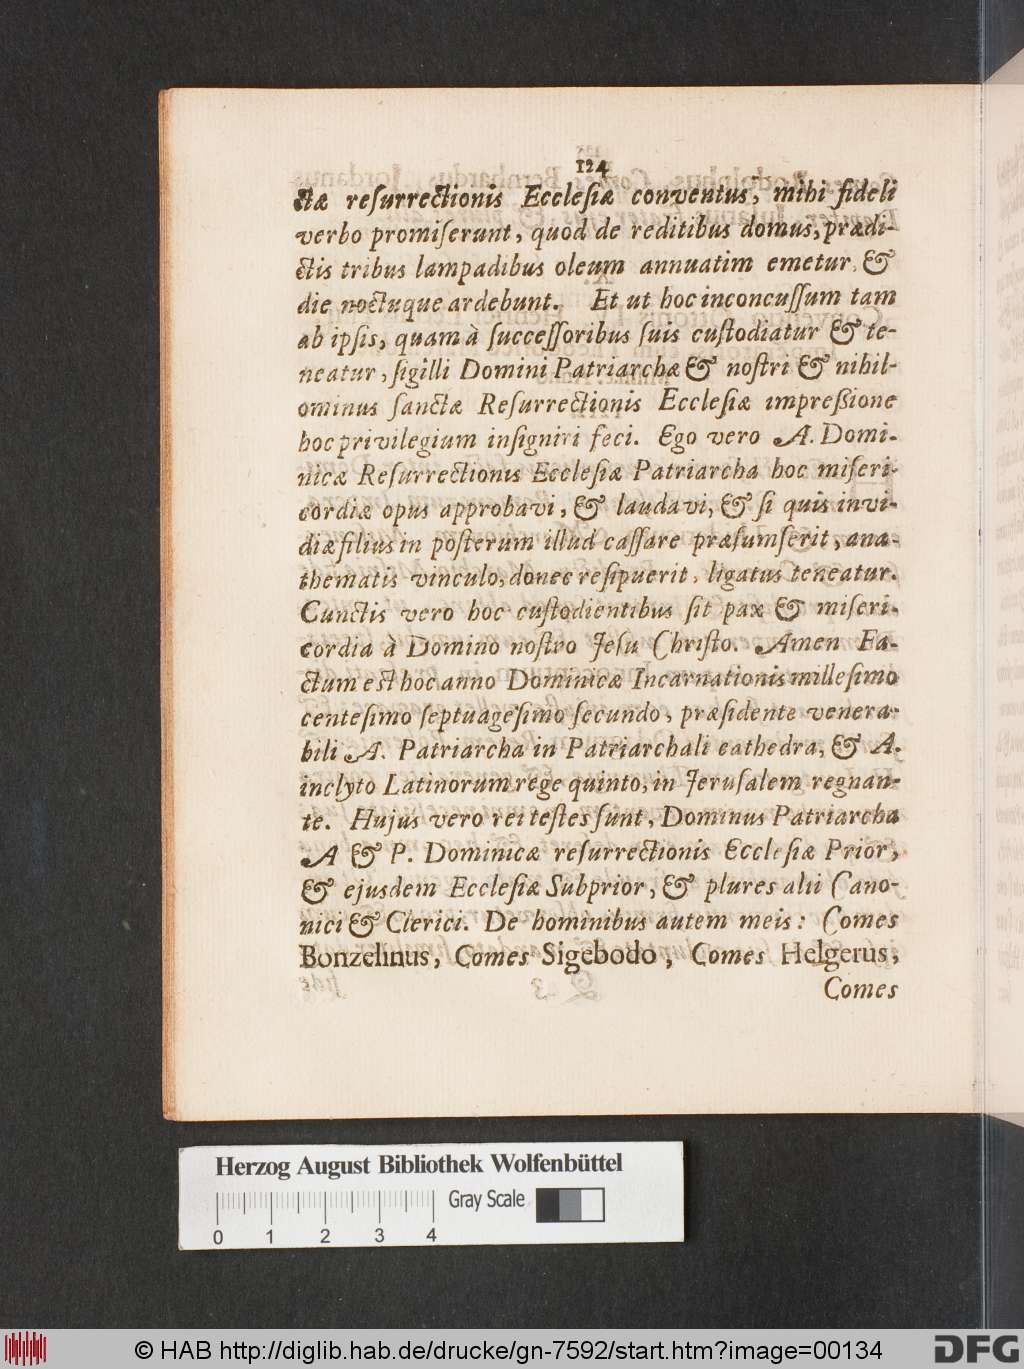 124
ctæ reſurrectionis Eccleſiæ conventus, mihi fideli
verbo promiſerunt, quòd de reditibus domus, prædi-
ctis tribus lampadibus oleum annuatim emetur, &
die noctuque ardebunt. Et ut hoc inconcuſſum tam
ab ipſis, quam à ſucceſſoribus ſuis cuſtodiatur & te-
neatur, ſigilli Domini Patriarchæ & noſtri & nihil-
ominus ſanctæ Reſurrectionis Eccleſiæ impreßione
hoc privilegium inſigniri feci. Ego vero A. Domi-
nicæ Reſurrectionis Eccleſiæ Patriarcha hoc miſeri-
cordiæ opus approbavi, & laudavi, & ſi quis invi-
diæ filius in poſterum illud caſſare præſumſerit, ana-
thematis vinculo, donec reſipuerit, ligatus teneatur.
Cunctis vero hoc cuſtodientibus ſit pax & miſeri-
cordia à Domino noſtro Jeſu Chriſto. Amen Fa-
ctum eſt hoc anno Dominicæ Incarnationis milleſimo
centeſimo ſeptuageſimo ſecundo, præſidente venera-
bili A. Patriarcha in Patriarchali cathedra, & A.
inclyto Latinorum rege quinto, in Jeruſalem regnan-
te. Hujus vero rei teſtes ſunt, Dominus Patriarcha
A & P. Dominicæ reſurrectionis Eccleſiæ Prior,
& ejusdem Eccleſiæ Subprior, & plures alii Cano-
nici & Clerici. De hominibus autem meis: Comes
Bonzelinus, Comes Sigebodo, Comes Helgerus,
Comes
Herzog August Bibliothek Wolfenbüttel
Gray Scale
0 1 2 3 4
© HAB http://diglib.hab.de/drucke/gn-7592/start.htm?image=00134
DFG